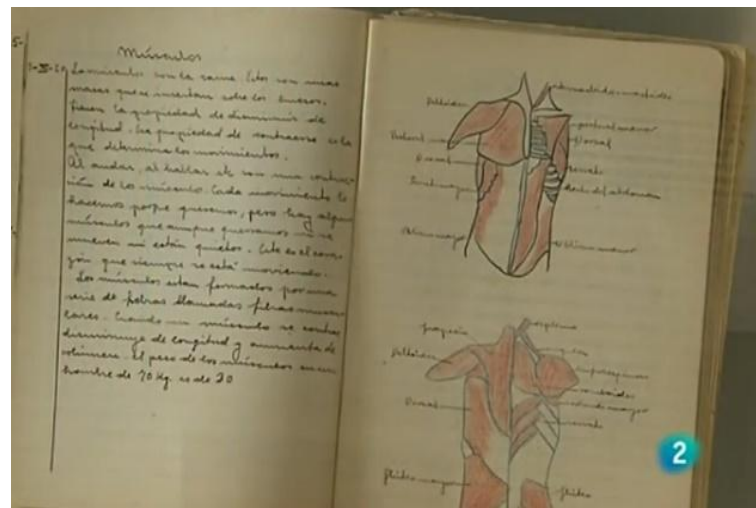 Músculos
Los músculos son la carne. Estos son unas
masas que se insertan sobre los huesos.
Tienen la propiedad de disminuir de
longitud. La propiedad de contraerse es la
que determina los movimientos.
Al andar, al hablar etc son una contrac-
ción de los músculos. Cada movimiento lo
hacemos porque queremos, pero hay algunos
músculos que aunque queramos no se
mueven ni están quietos. Este es el cora-
zón que siempre se está moviendo.
Los músculos están formados por una
serie de fibras llamadas fibras muscu-
lares. Cuando un músculo se contrae
disminuye de longitud y aumenta de
volumen. El peso de los músculos en un
hombre de 70 Kg es de 30
Deltoides
pectoral menor
Dorsal
Dorsal
serrato
Recto del abdomen
Oblicuo mayor
Oblicuo menor
trapecio
esplenio
Deltoides
romboides
redondo mayor
Dorsal
serrato
glúteo mayor
glúteo
2